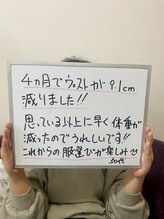 4ヵ月でウエストが9.1cm
減りました!!
思っている以上に早く体重が
減ったのでうれしいです!!
これからの服選びが楽しみ